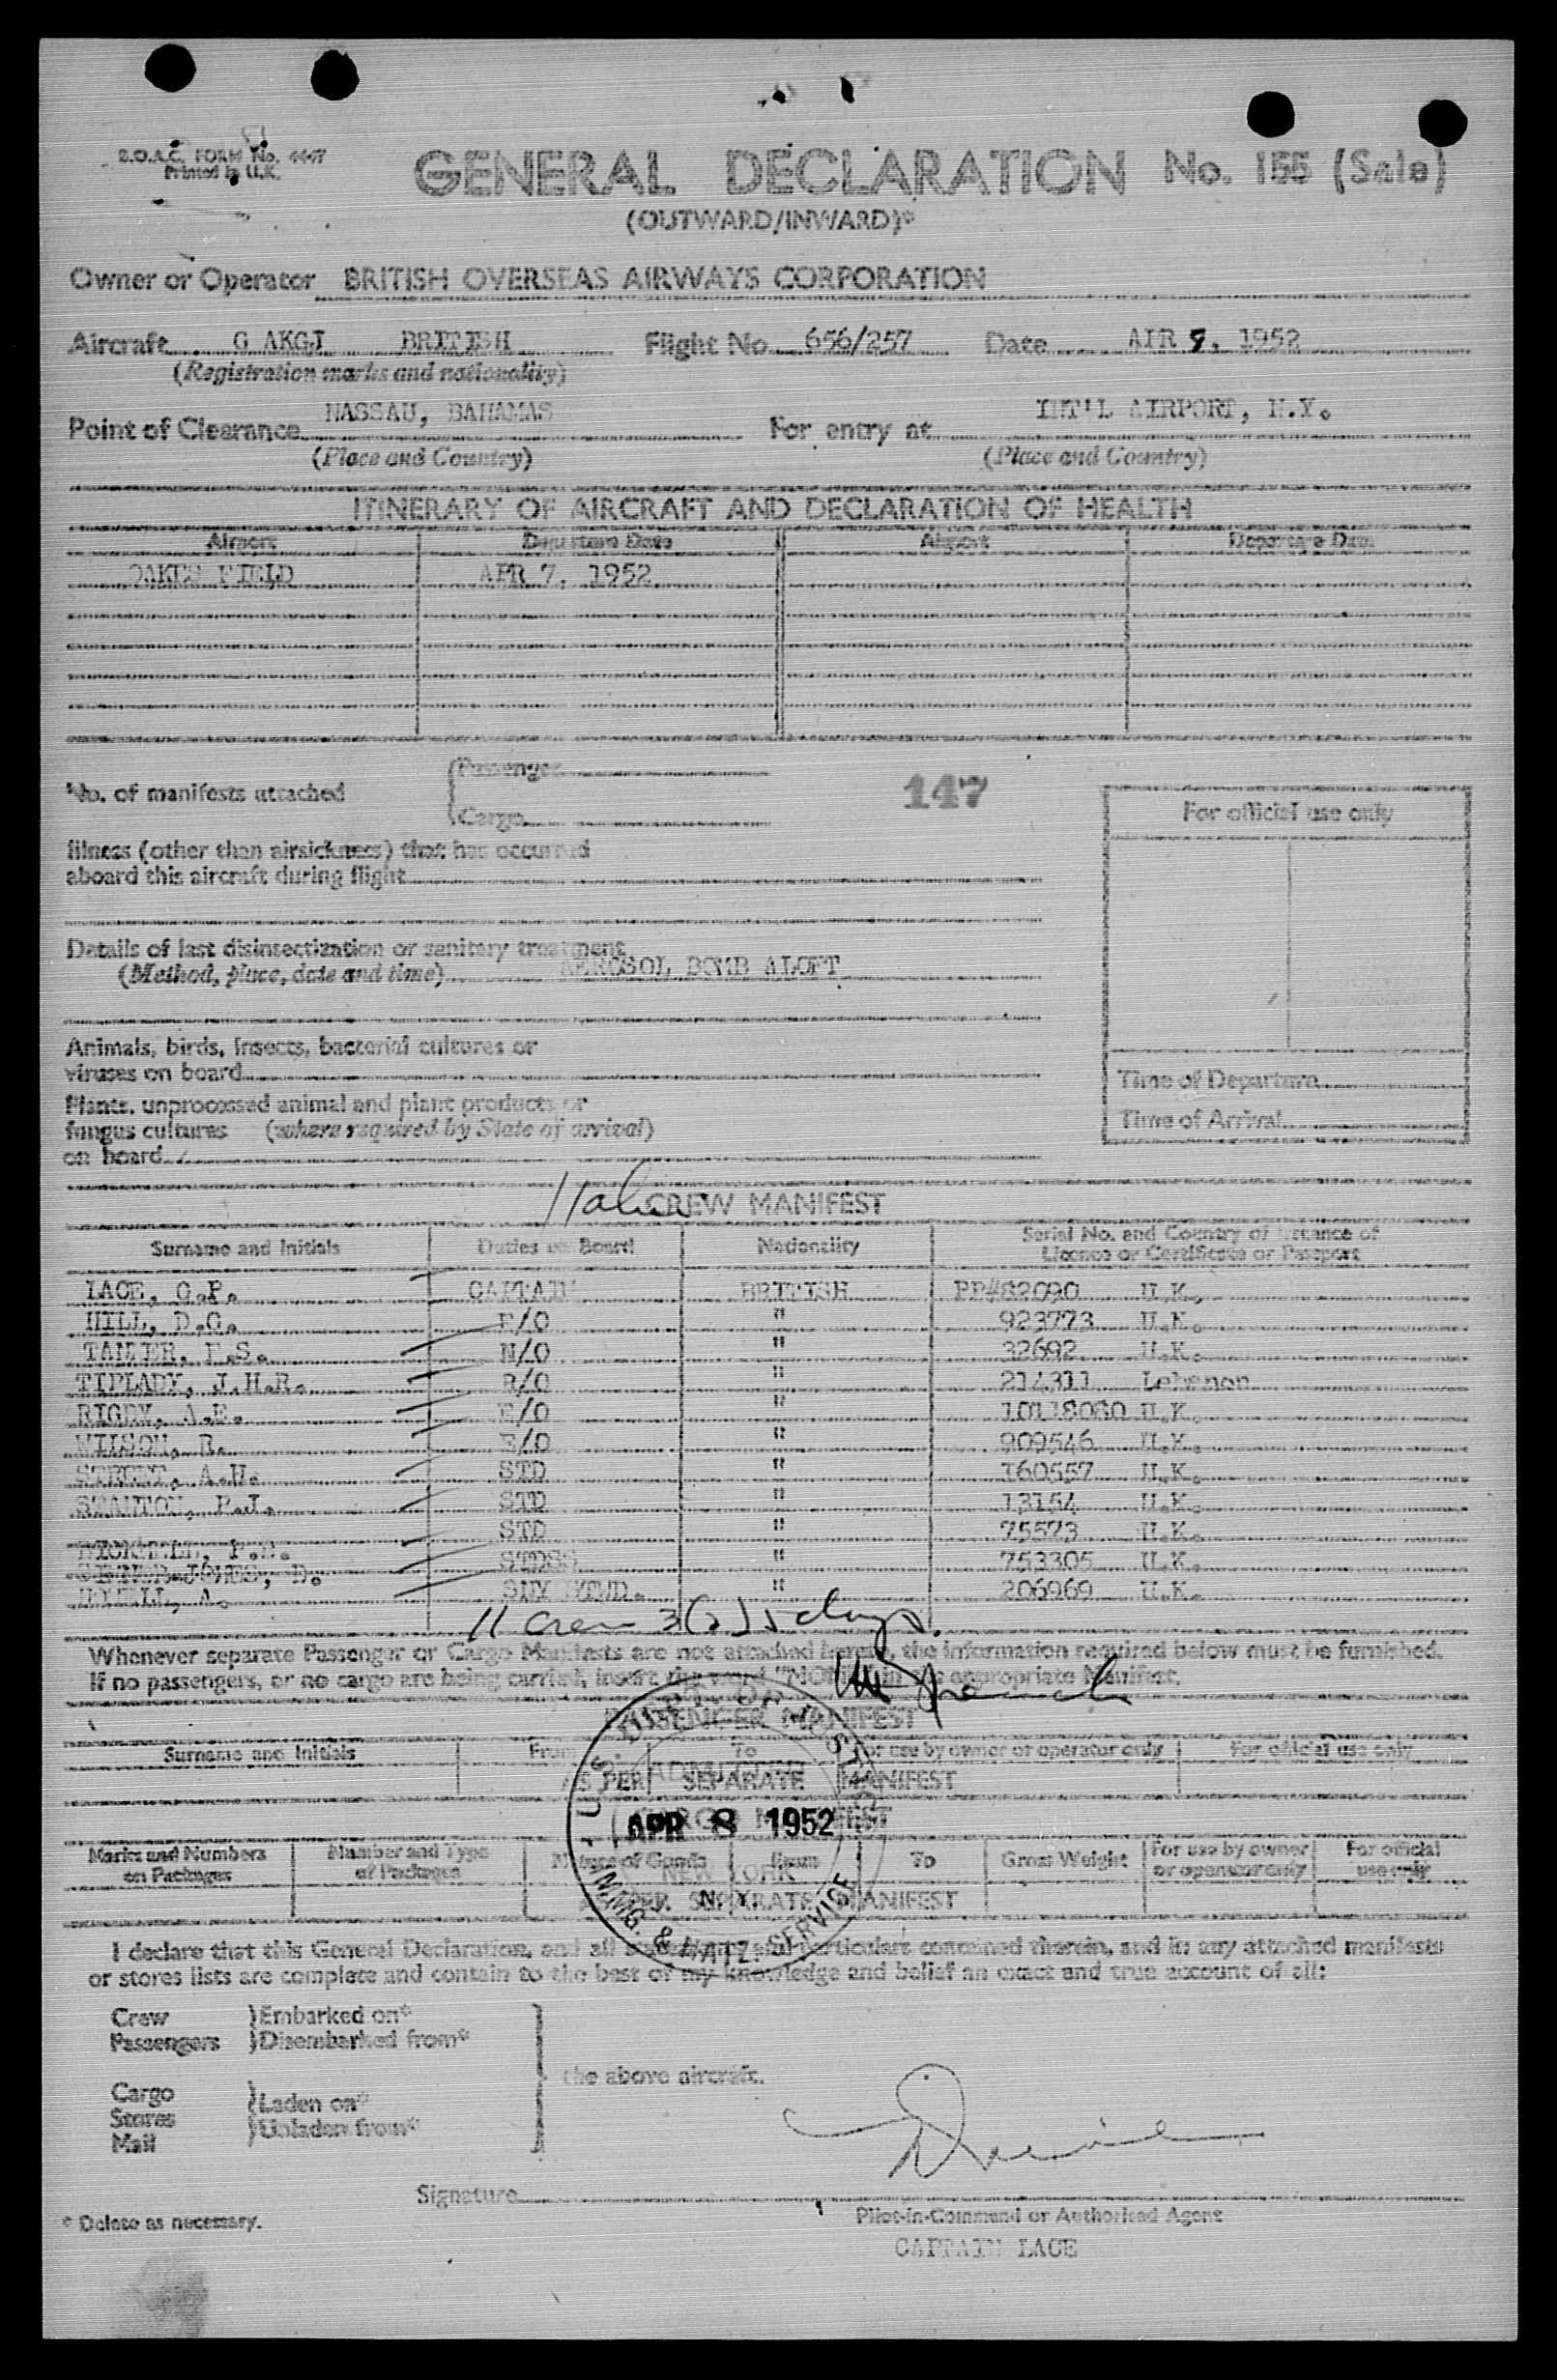 B.O.A.C. FORM No. 4447
Printed in U.K.
GENERAL DECLARATION No. 155 (Sale)
(OUTWARD/INWARD)*
Owner or Operator BRITISH OVERSEAS AIRWAYS CORPORATION
Aircraft G AKGJ BRITISH Flight No 656/257 Date APR 7, 1952
(Registration marks and nationality)
Point of Clearance NASSAU, BAHAMAS For entry at INT'L AIRPORT, N.Y.
(Place and Country) (Place and Country)
ITINERARY OF AIRCRAFT AND DECLARATION OF HEALTH
Airport Departure Date Airport Departure Date
OAKES FIELD APR 7, 1952
Passenger
No. of manifests attached 147
Cargo
For official use only
Illness (other than airsickness) that has occurred
aboard this aircraft during flight
Details of last disinsectization or sanitary treatment
(Method, place, date and time) AEROSOL BOMB ALOFT
Animals, birds, insects, bacterial cultures or
viruses on board
Time of Departure
Plants, unprocessed animal and plant products or
fungus cultures (where required by State of arrival)
on board
Time of Arrival
CREW MANIFEST
Surname and Initials Duties on Board Nationality Serial No. and Country of Issuance of
Licence or Certificate or Passport
LACE, G.P. CAPTAIN BRITISH PP#82090 U.K.
HILL, D.G. F/O " 923773 U.K.
N/O " 32692 U.K.
TIPLADY, J.H.R. R/O " 214311 Lebanon
RIGBY, A.E. E/O " U.K.
WILSON, R. E/O " 909546 U.K.
A.H. STD " 160557 U.K.
STANTON, P.J. STD " 13154 U.K.
STD " 75573 U.K.
JONES, D. STDSS " 753305 U.K.
A. " 206969 U.K.
11 Crew 3(5) days.
Whenever separate Passenger or Cargo Manifests are not attached hereto, the information required below must be furnished.
If no passengers, or no cargo are being carried, insert the word "NONE" in the appropriate Manifest.
PASSENGER MANIFEST
Surname and Initials From To For use by owner or operator only For official use only
AS PER SEPARATE MANIFEST
CARGO MANIFEST
U.S. DEPT. OF JUSTICE
ADMITTED
APR 8 1952
NEW YORK
N.Y.
IMMIG. & NATZ. SERVICE
Marks and Numbers on Packages Number and Type of Packages Nature of Goods From To Gross Weight For use by owner or operator only For official use only
AS PER SEPARATE MANIFEST
I declare that this General Declaration, and all statements and particulars contained therein, and in any attached manifests
or stores lists are complete and contain to the best of my knowledge and belief an exact and true account of all:
Crew Embarked on*
Passengers Disembarked from*
the above aircraft.
Cargo Laden on*
Stores Unladen from*
Mail
Signature
* Delete as necessary.
Pilot-in-Command or Authorised Agent
CAPTAIN LACE